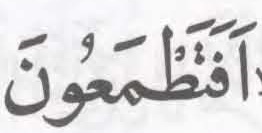 اَفَتَطْمَعُونَ